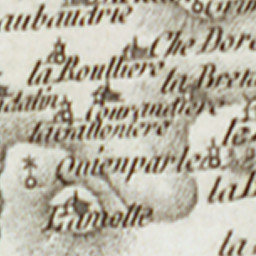 aubaudrie
Che Dore
la Roulliere
la Breta
Courandiere
la Valloniere
le
Quienparle
la
Lamotte
la